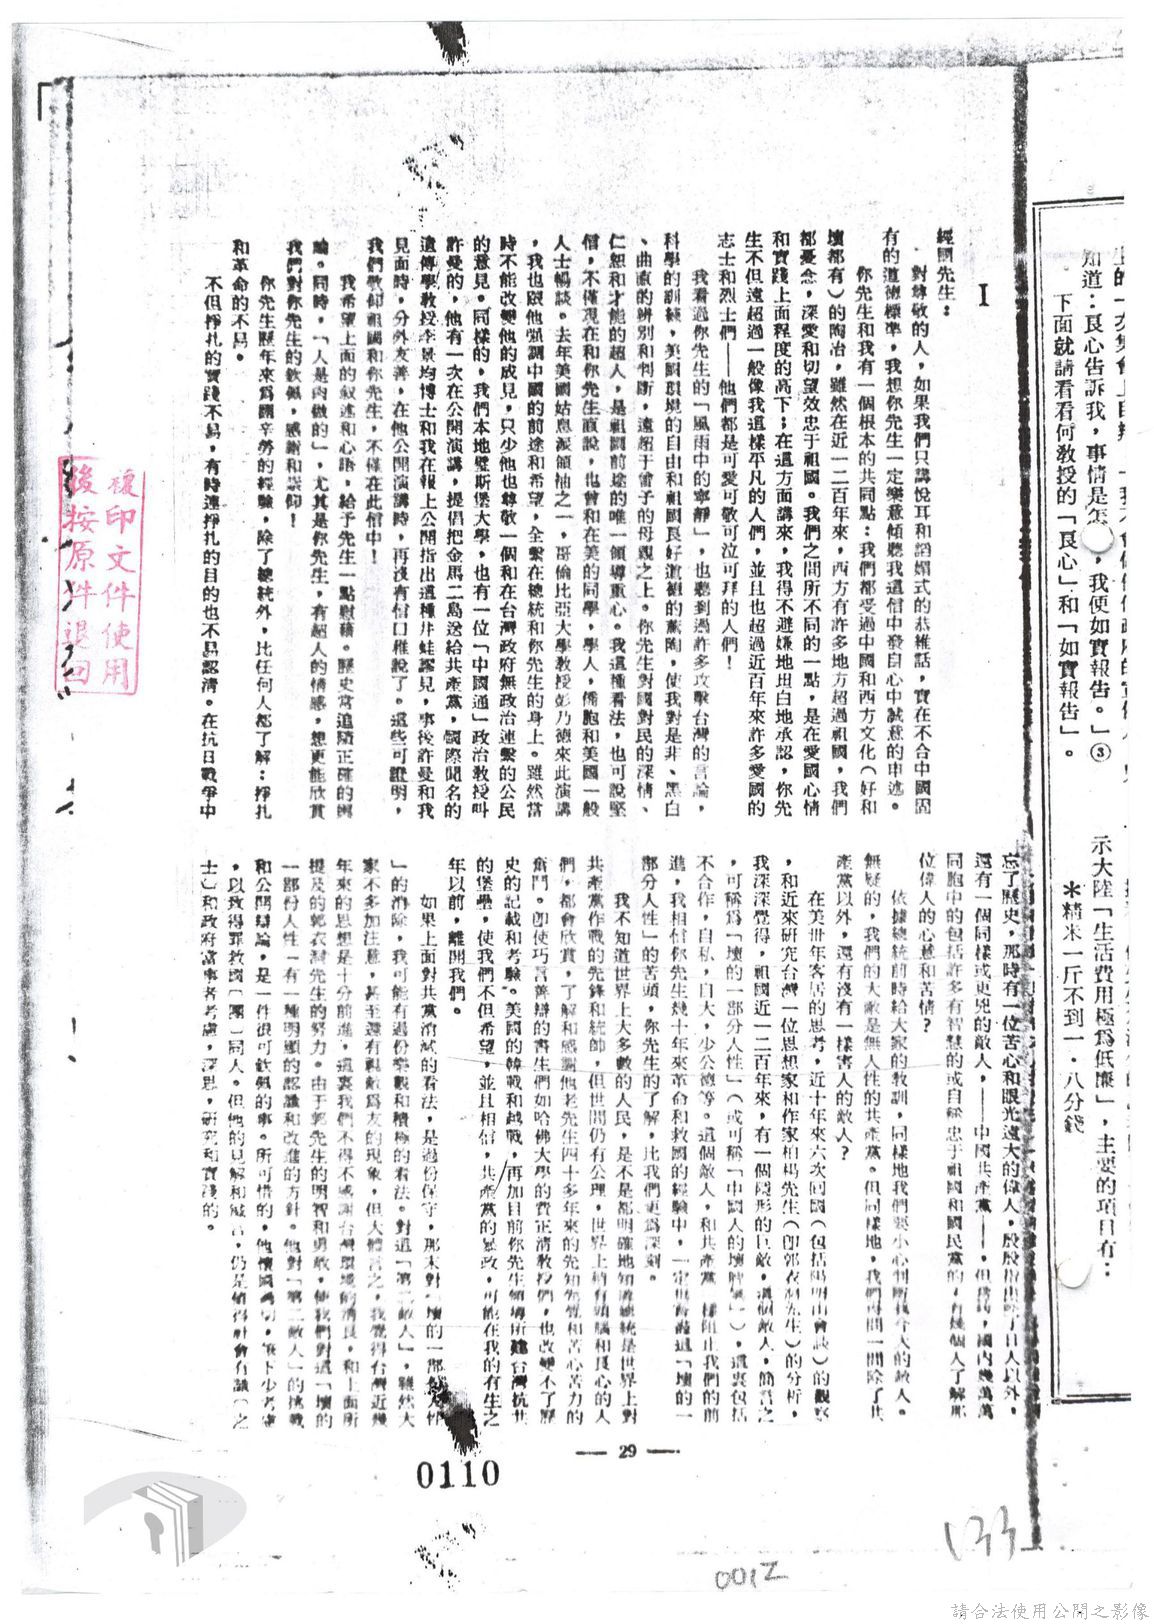 知道：良心告訴我，事情是怎，我便如實報告。」③
下面就請看看何教授的「良心」和「如實報告」。
示大陸「生活費用極為低廉」，主要的項目有：
＊精米一斤不到一·八分錢
I
經國先生：
對尊敬的人，如果我們只講悅耳和諂媚式的恭維話，實在不合中國固
有的道德標準，我想你先生一定樂意傾聽我這信中發自心中誠意的申述。
你先生和我有一個根本的共同點：我們都受過中國和西方文化（好和
壞都有）的陶冶，雖然在近一二百年來，西方有許多地方超過祖國，我們
都憂念，深愛和切望效忠于祖國。我們之間所不同的一點，是在愛國心情
和實踐上面程度的高下；在這方面講來，我得不避嫌地坦白地承認，你先
生不但遠超過一般像我這樣平凡的人們，並且也超過近百年來許多愛國的
志士和烈士們——他們都是可愛可敬可泣可拜的人們！
我看過你先生的「風雨中的寧靜」，也聽到過許多攻擊台灣的言論，
科學的訓練，美國環境的自由和祖國良好道德的薰陶，使我對是非、黑白
、曲直的辨別和判斷，遠超于曾子的母親之上。你先生對國對民的深情、
仁恕和才能的超人，是祖國前途的唯一領導重心。我這種看法，也可說堅
信，不僅現在和你先生直說，也曾和在美的同學，學人，僑胞和美國一般
人士暢談。去年美國姑息派領袖之一，哥倫比亞大學教授彭乃德來此演講
，我也跟他強調中國的前途和希望，全繫在總統和你先生的身上。雖然當
時不能改變他的成見，只少他也尊敬一個和在台灣政府無政治連繫的公民
的意見。同樣的，我們本地璧斯堡大學，也有一位「中國通」政治教授叫
許曼的，他有一次在公開演講，提倡把金馬二島送給共產黨，國際聞名的
遺傳學教授李景均博士和我在報上公開指出這種井蛙謬見，事後許曼和我
見面時，分外友善，在他公開演講時，再沒有信口雌說了。這些可證明，
我們敬仰祖國和你先生，不僅在此信中！
我希望上面的叙述和心語，給予先生一點慰藉。歷史常追隨正確的輿
論。同時，「人是肉做的」，尤其是你先生，有超人的情感，想更能欣賞
我們對你先生的欽佩，感謝和崇仰！
你先生歷年來為國辛勞的經驗，除了總統外，比任何人都了解：掙扎
和革命的不易。
不但掙扎的實踐不易，有時連掙扎的目的也不易認清。在抗日戰爭中
忘了歷史，那時有一位苦心和眼光遠大的偉人，殷殷指出除了日人以外，
還有一個同樣或更兇的敵人，——中國共產黨——，但當時，國內幾萬萬
同胞中的包括許多有智慧的或自稱忠于祖國和國民黨的，有幾個人了解那
位偉人的心意和苦情？
依據總統前時給大家的教訓，同樣地我們要小心判斷我今天的敵人。
無疑的，我們的大敵是無人性的共產黨。但同樣地，我們再問一問除了共
產黨以外，還有沒有一樣害人的敵人？
在美卅年客居的思考，近十年來六次回國（包括陽明山會談）的觀察
，和近來研究台灣一位思想家和作家柏楊先生（即郭衣洞先生）的分析，
我深深覺得，祖國近一二百年來，有一個隱形的巨敵，這個敵人，簡言之
，可稱為「壞的一部分人性」（或可稱「中國人的壞脾氣」），這裏包括
不合作，自私，自大，少公德等。這個敵人，和共產黨一樣阻止我們的前
進，我相信你先生幾十年來革命和救國的經驗中，一定也嘗過這「壞的一
部分人性」的苦頭，你先生的了解，比我們更為深刻。
我不知道世界上大多數的人民，是不是都明確地知道總統是世界上對
共產黨作戰的先鋒和統帥，但世間仍有公理，世界上稍有頭腦和良心的人
們，都會欣賞，了解和感謝他老先生四十多年來的先知先覺和苦心苦力的
奮鬥。即使巧言善辯的書生們如哈佛大學的費正清教授們，也改變不了歷
史的記載和考驗。美國的韓戰和越戰，再加目前你先生領導所建台灣抗共
的堡壘，使我們不但希望，並且相信，共產黨的暴政，可能在我的有生之
年以前，離開我們。
如果上面對共黨消滅的看法，是過份保守，那末對「壞的一部份人性
」的消除，我可能有過份樂觀和積極的看法。對這「第二敵人」，雖然大
家不多加注意，甚至還有視敵為友的現象，但大體言之，我覺得台灣近幾
年來的思想是十分前進，這裏我們不得不感謝台灣環境的清良，和上面所
提及的郭衣洞先生的努力。由于郭先生的明智和勇敢，使我們對這「壞的
一部份人性」有一種明顯的認識和改進的方針。他對「第二敵人」的挑戰
和公開辯論，是一件很可欽佩的事。所可惜的，他懷國心切，筆下少考慮
，以致得罪救國（團）同人。但他的見解和諫言，仍是值得社會有識（之
士）和政府當事者考慮，深思，研究和實踐的。
— 29 —
0110
0012
133
複印文件使用
後按原件退回
請合法使用公開之影像